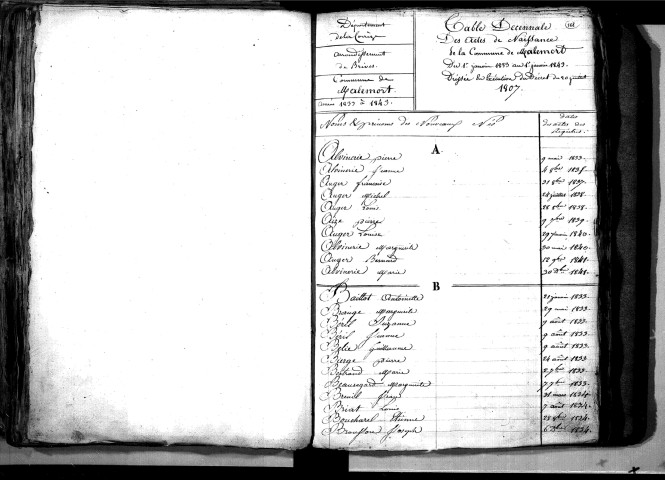 Département
de la Corrèze
arrondissement
de Brives.
Commune de
Malemort.
1833 à 1843.
Table Decennale
Des Actes de Naissance
de la Commune de Malemort
Du 1er janvier 1833 au 1er janvier 1843.
Dressée en Exécution du Décret du 20 juillet
1807.
Noms & prénoms des Nouveaux Nés
dates
des actes des
Registres.
A
Alvinerie pierre 9 mai 1833.
Alvinerie Jeanne 4 8bre 1835.
Auger françoise 31 8bre 1837.
Auger Michel 24 juillet 1838.
Auger Louis 28 8bre 1838.
Alize pierre 9 9bre 1839.
Auger Louise 29 janvier 1840.
Alvinerie Marguerite 20 mai 1840.
Auger Bernard 12 9bre 1841.
Alvinerie Marie 30 Xbre 1841.
B
Baillot Antoinette 21 janvier 1833.
Brange Marguerite 29 mai 1833.
Béril Suzanne 9 août 1833.
Béril Jeanne 9 août 1833.
Bélie Guillaume 9 août 1833.
Barge pierre 24 août 1833.
Bertrand Marie 2 7bre 1833.
Beauregard Marguerite 7 7bre 1833.
Breuil 31 mars 1834.
Briat Louis 7 août 1834.
Boucharel Etienne 1834.
Joseph 1834.